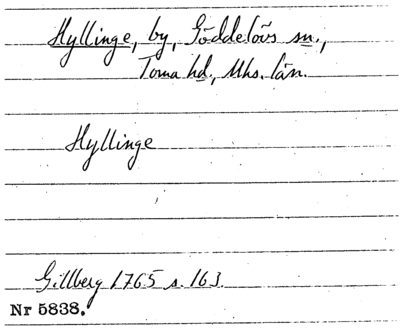 Hyllinge, by, Göddelövs sn.,
Torna hd., Mhs. län.
Hyllinge
Gillberg 1765 s. 163.
Nr 5838.